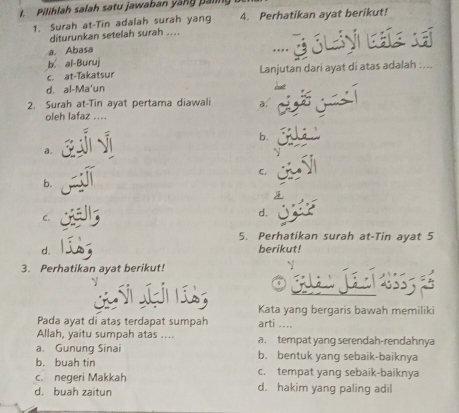 I. Pilihlah salah satu jawaban yang paling
1. Surah at-Tin adalah surah yang
diturunkan setelah surah ....
a. Abasa
b. al-Buruj
c. at-Takatsur
d. al-Ma'un
2. Surah at-Tin ayat pertama diawali
oleh lafaz ....
a.
b.
c. وَالتِّيْنِ
d. وَهٰذَا
3. Perhatikan ayat berikut!
وَهٰذَا الْبَلَدِ الْاَمِيْنِ
Pada ayat di atas terdapat sumpah
Allah, yaitu sumpah atas ....
a. Gunung Sinai
b. buah tin
c. negeri Makkah
d. buah zaitun
4. Perhatikan ayat berikut!
لَقَدْ خَلَقْنَا الْاِنْسَانَ فِيْٓ ....
Lanjutan dari ayat di atas adalah ....
a. اَحْسَنِ تَقْوِيْمٍ
b. سَافِلِيْنَ
c. الْاَمِيْنِ
d. مَمْنُوْنٍ
5. Perhatikan surah at-Tin ayat 5
berikut!
ثُمَّ رَدَدْنٰهُ اَسْفَلَ سَافِلِيْنَ
Kata yang bergaris bawah memiliki
arti ....
a. tempat yang serendah-rendahnya
b. bentuk yang sebaik-baiknya
c. tempat yang sebaik-baiknya
d. hakim yang paling adil